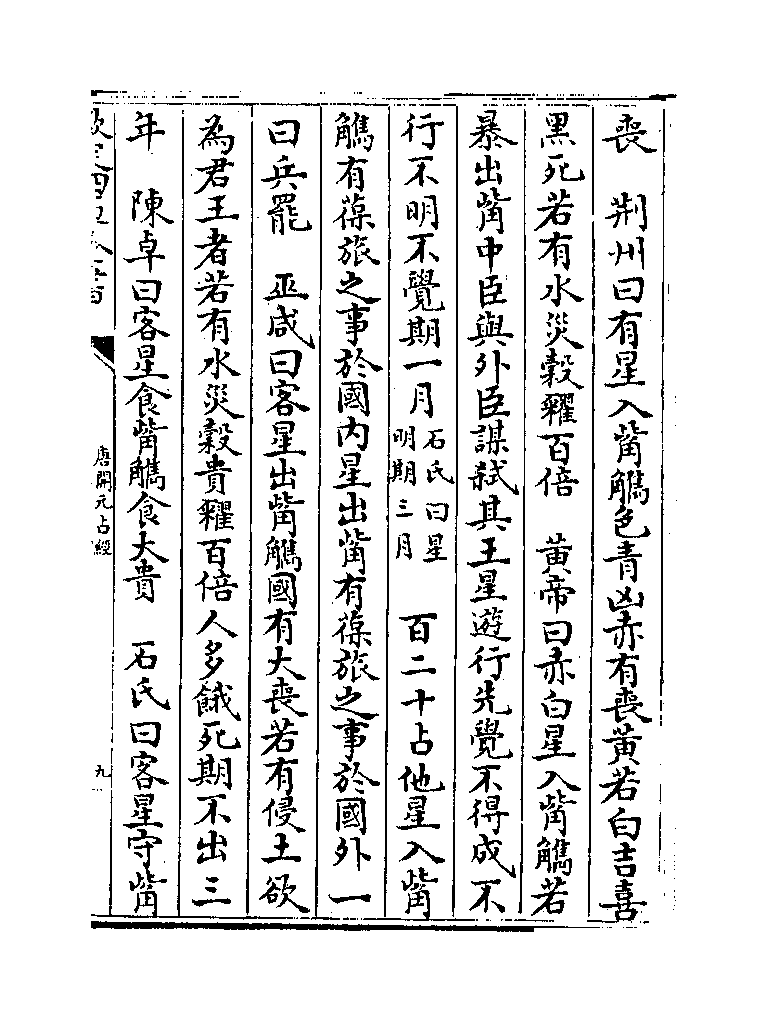 喪　荆州曰有星入觜觿色青凶赤有喪黄若白吉喜
黑死若有水災穀糴百倍　黄帝曰赤白星入觜觿若
暴出觜中臣與外臣謀弑其王星遊行先覺不得成不
行不明不覺期一月石氏曰星明期三月　百二十占他星入觜
觿有葆旅之事於國内星出觜有葆旅之事於國外一
曰兵罷　巫咸曰客星出觜觿國有大喪若有侵土欲
為君王者若有水災穀貴糴百倍人多餓死期不出三
年　陳卓曰客星食觜觿食大貴　石氏曰客星守觜
唐開元占經
九